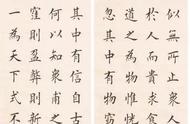 似無所止衆人
於人而貴求食
道之為物惟恍
忽其中有物窈
其中有信自古
何以知衆甫之
窪則盈弊則新
一為天下式不